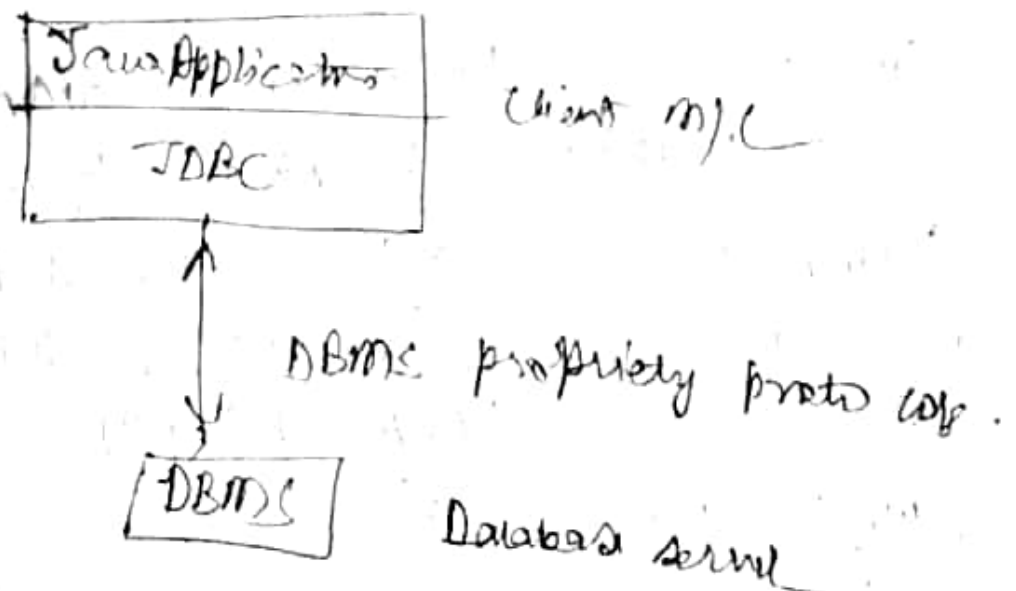 Java Application
Client M/C
JDBC
DBMS propriety protocols.
DBMS
Database server